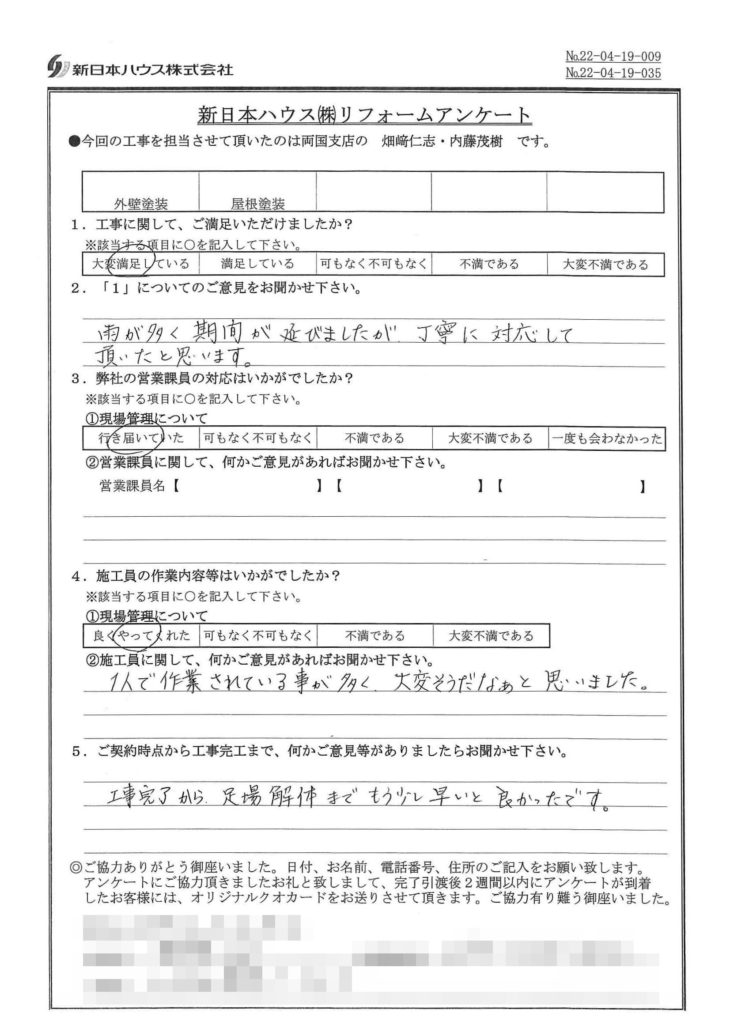 新日本ハウス株式会社
№22-04-19-009
№22-04-19-035
新日本ハウス㈱リフォームアンケート
●今回の工事を担当させて頂いたのは両国支店の 畑﨑仁志・内藤茂樹 です。
外壁塗装 屋根塗装
1．工事に関して、ご満足いただけましたか？
※該当する項目に○を記入して下さい。
大変満足している 満足している 可もなく不可もなく 不満である 大変不満である
2．「1」についてのご意見をお聞かせ下さい。
雨が多く期間が延びましたが、丁寧に対応して
頂いたと思います。
3．弊社の営業課員の対応はいかがでしたか？
※該当する項目に○を記入して下さい。
①現場管理について
行き届いていた 可もなく不可もなく 不満である 大変不満である 一度も会わなかった
②営業課員に関して、何かご意見があればお聞かせ下さい。
営業課員名【 】【 】【 】
4．施工員の作業内容等はいかがでしたか？
※該当する項目に○を記入して下さい。
①現場管理について
良くやってくれた 可もなく不可もなく 不満である 大変不満である
②施工員に関して、何かご意見があればお聞かせ下さい。
1人で作業されている事が多く、大変そうだなぁと思いました。
5．ご契約時点から工事完工まで、何かご意見等がありましたらお聞かせ下さい。
工事完了から、足場解体までもう少し早いと良かったです。
◎ご協力ありがとう御座いました。日付、お名前、電話番号、住所のご記入をお願い致します。
アンケートにご協力頂きましたお礼と致しまして、完了引渡後２週間以内にアンケートが到着
したお客様には、オリジナルクオカードをお送りさせて頂きます。ご協力有り難う御座いました。